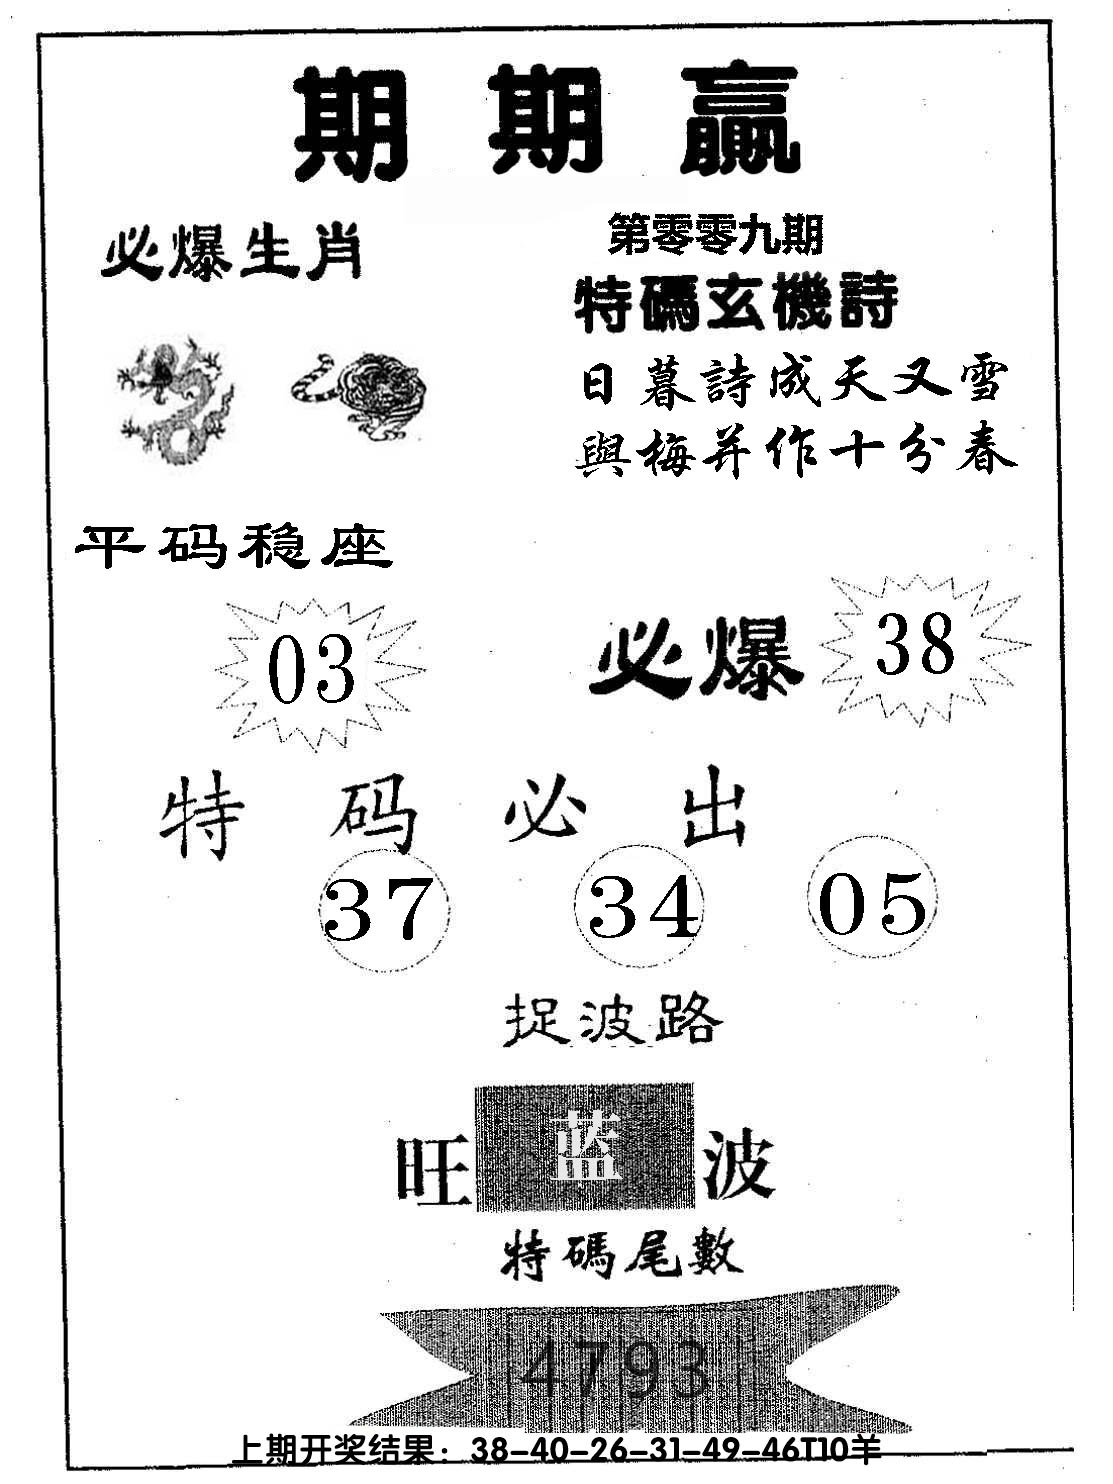 期期赢
必爆生肖
第零零九期
特碼玄機詩
日暮詩成天又雪
與梅并作十分春
平码稳座
03
必爆 38
特码必出
37 34 05
捉波路
旺蓝波
特碼尾數
4793
上期开奖结果：38-40-26-31-49-46T10羊